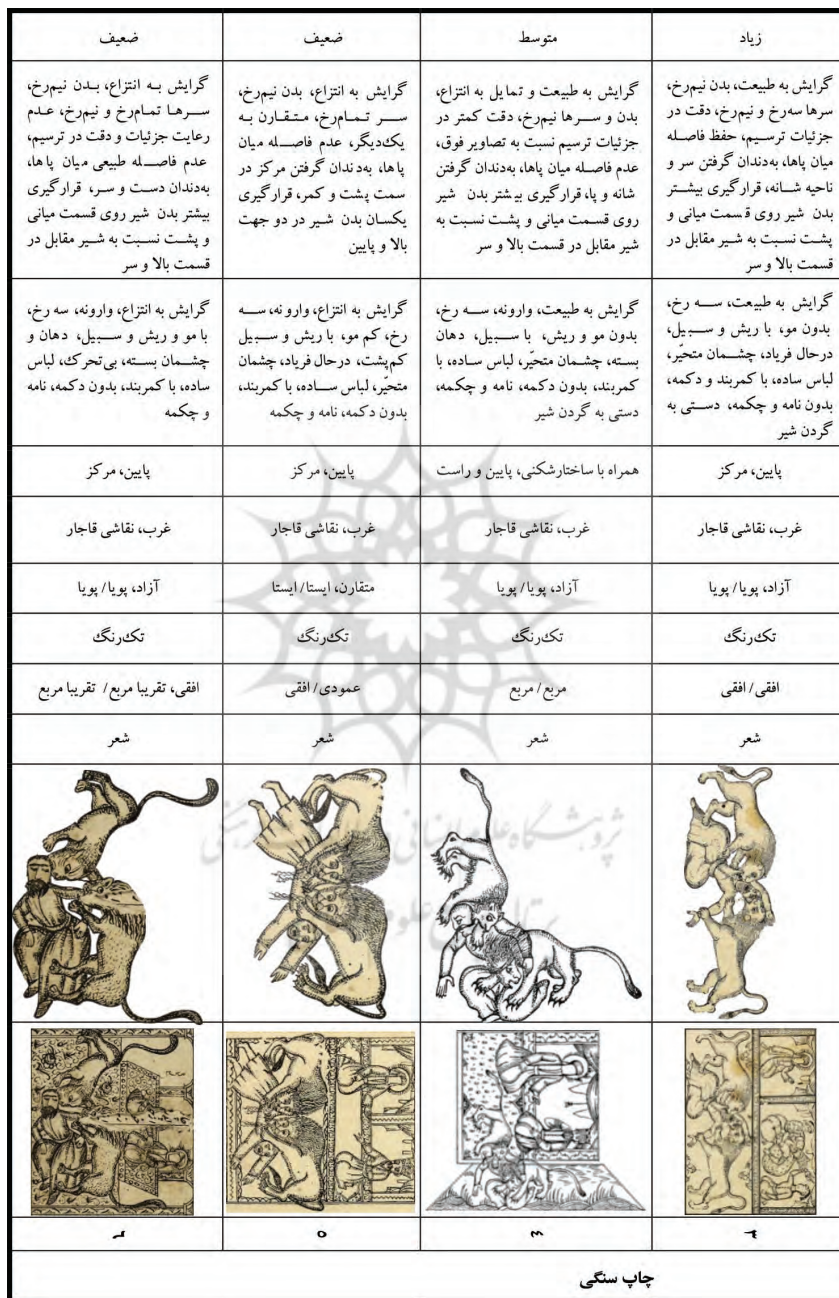 زیاد
متوسط
ضعیف
ضعیف
گرایش به طبیعت، بدن نیم‌رخ،
سرها سه‌رخ و نیم‌رخ، دقت در
جزئیات ترسیم، حفظ فاصله
میان پاها، به‌دندان گرفتن سر و
ناحیه شانه، قرارگیری بیشتر
بدن شیر روی قسمت میانی و
پشت نسبت به شیر مقابل در
قسمت بالا و سر
گرایش به طبیعت و تمایل به انتزاع،
بدن و سرها نیم‌رخ، دقت کمتر در
جزئیات ترسیم نسبت به تصاویر فوق،
عدم فاصله میان پاها، به‌دندان گرفتن
شانه و پا، قرارگیری بیشتر بدن شیر
روی قسمت میانی و پشت نسبت به
شیر مقابل در قسمت بالا و سر
گرایش به انتزاع، بدن نیم‌رخ،
سر تمام‌رخ، متقارن به
یک‌دیگر، عدم فاصله میان
پاها، به‌دندان گرفتن مرکز در
سمت پشت و کمر، قرارگیری
یکسان بدن شیر در دو جهت
بالا و پایین
گرایش به انتزاع، بدن نیم‌رخ،
سرها تمام‌رخ و نیم‌رخ، عدم
رعایت جزئیات و دقت در ترسیم،
عدم فاصله طبیعی میان پاها،
به‌دندان دست و سر، قرارگیری
بیشتر بدن شیر روی قسمت میانی
و پشت نسبت به شیر مقابل در
قسمت بالا و سر
گرایش به طبیعت، سه رخ،
بدون مو، با ریش و سبیل،
درحال فریاد، چشمان متحیّر،
لباس ساده، با کمربند و دکمه،
بدون نامه و چکمه، دستی به
گردن شیر
گرایش به طبیعت، وارونه، سه رخ،
بدون مو و ریش، با سبیل، دهان
بسته، چشمان متحیّر، لباس ساده، با
کمربند، بدون دکمه، نامه و چکمه،
دستی به گردن شیر
گرایش به انتزاع، وارونه، سه
رخ، کم مو، با ریش و سبیل
کم‌پشت، درحال فریاد، چشمان
متحیّر، لباس ساده، با کمربند،
بدون دکمه، نامه و چکمه
گرایش به انتزاع، وارونه، سه رخ،
با مو و ریش و سبیل، دهان و
چشمان بسته، بی‌تحرک، لباس
ساده، با کمربند، بدون دکمه، نامه
و چکمه
پایین، مرکز
همراه با ساختارشکنی، پایین و راست
پایین، مرکز
پایین، مرکز
غرب، نقاشی قاجار
غرب، نقاشی قاجار
غرب، نقاشی قاجار
غرب، نقاشی قاجار
آزاد، پویا/ پویا
آزاد، پویا/ پویا
متقارن، ایستا/ ایستا
آزاد، پویا/ پویا
تک‌رنگ
تک‌رنگ
تک‌رنگ
تک‌رنگ
افقی/ افقی
مربع/ مربع
عمودی/ افقی
افقی، تقریبا مربع/ تقریبا مربع
شعر
شعر
شعر
شعر
۳
٤
٥
٦
چاپ سنگی